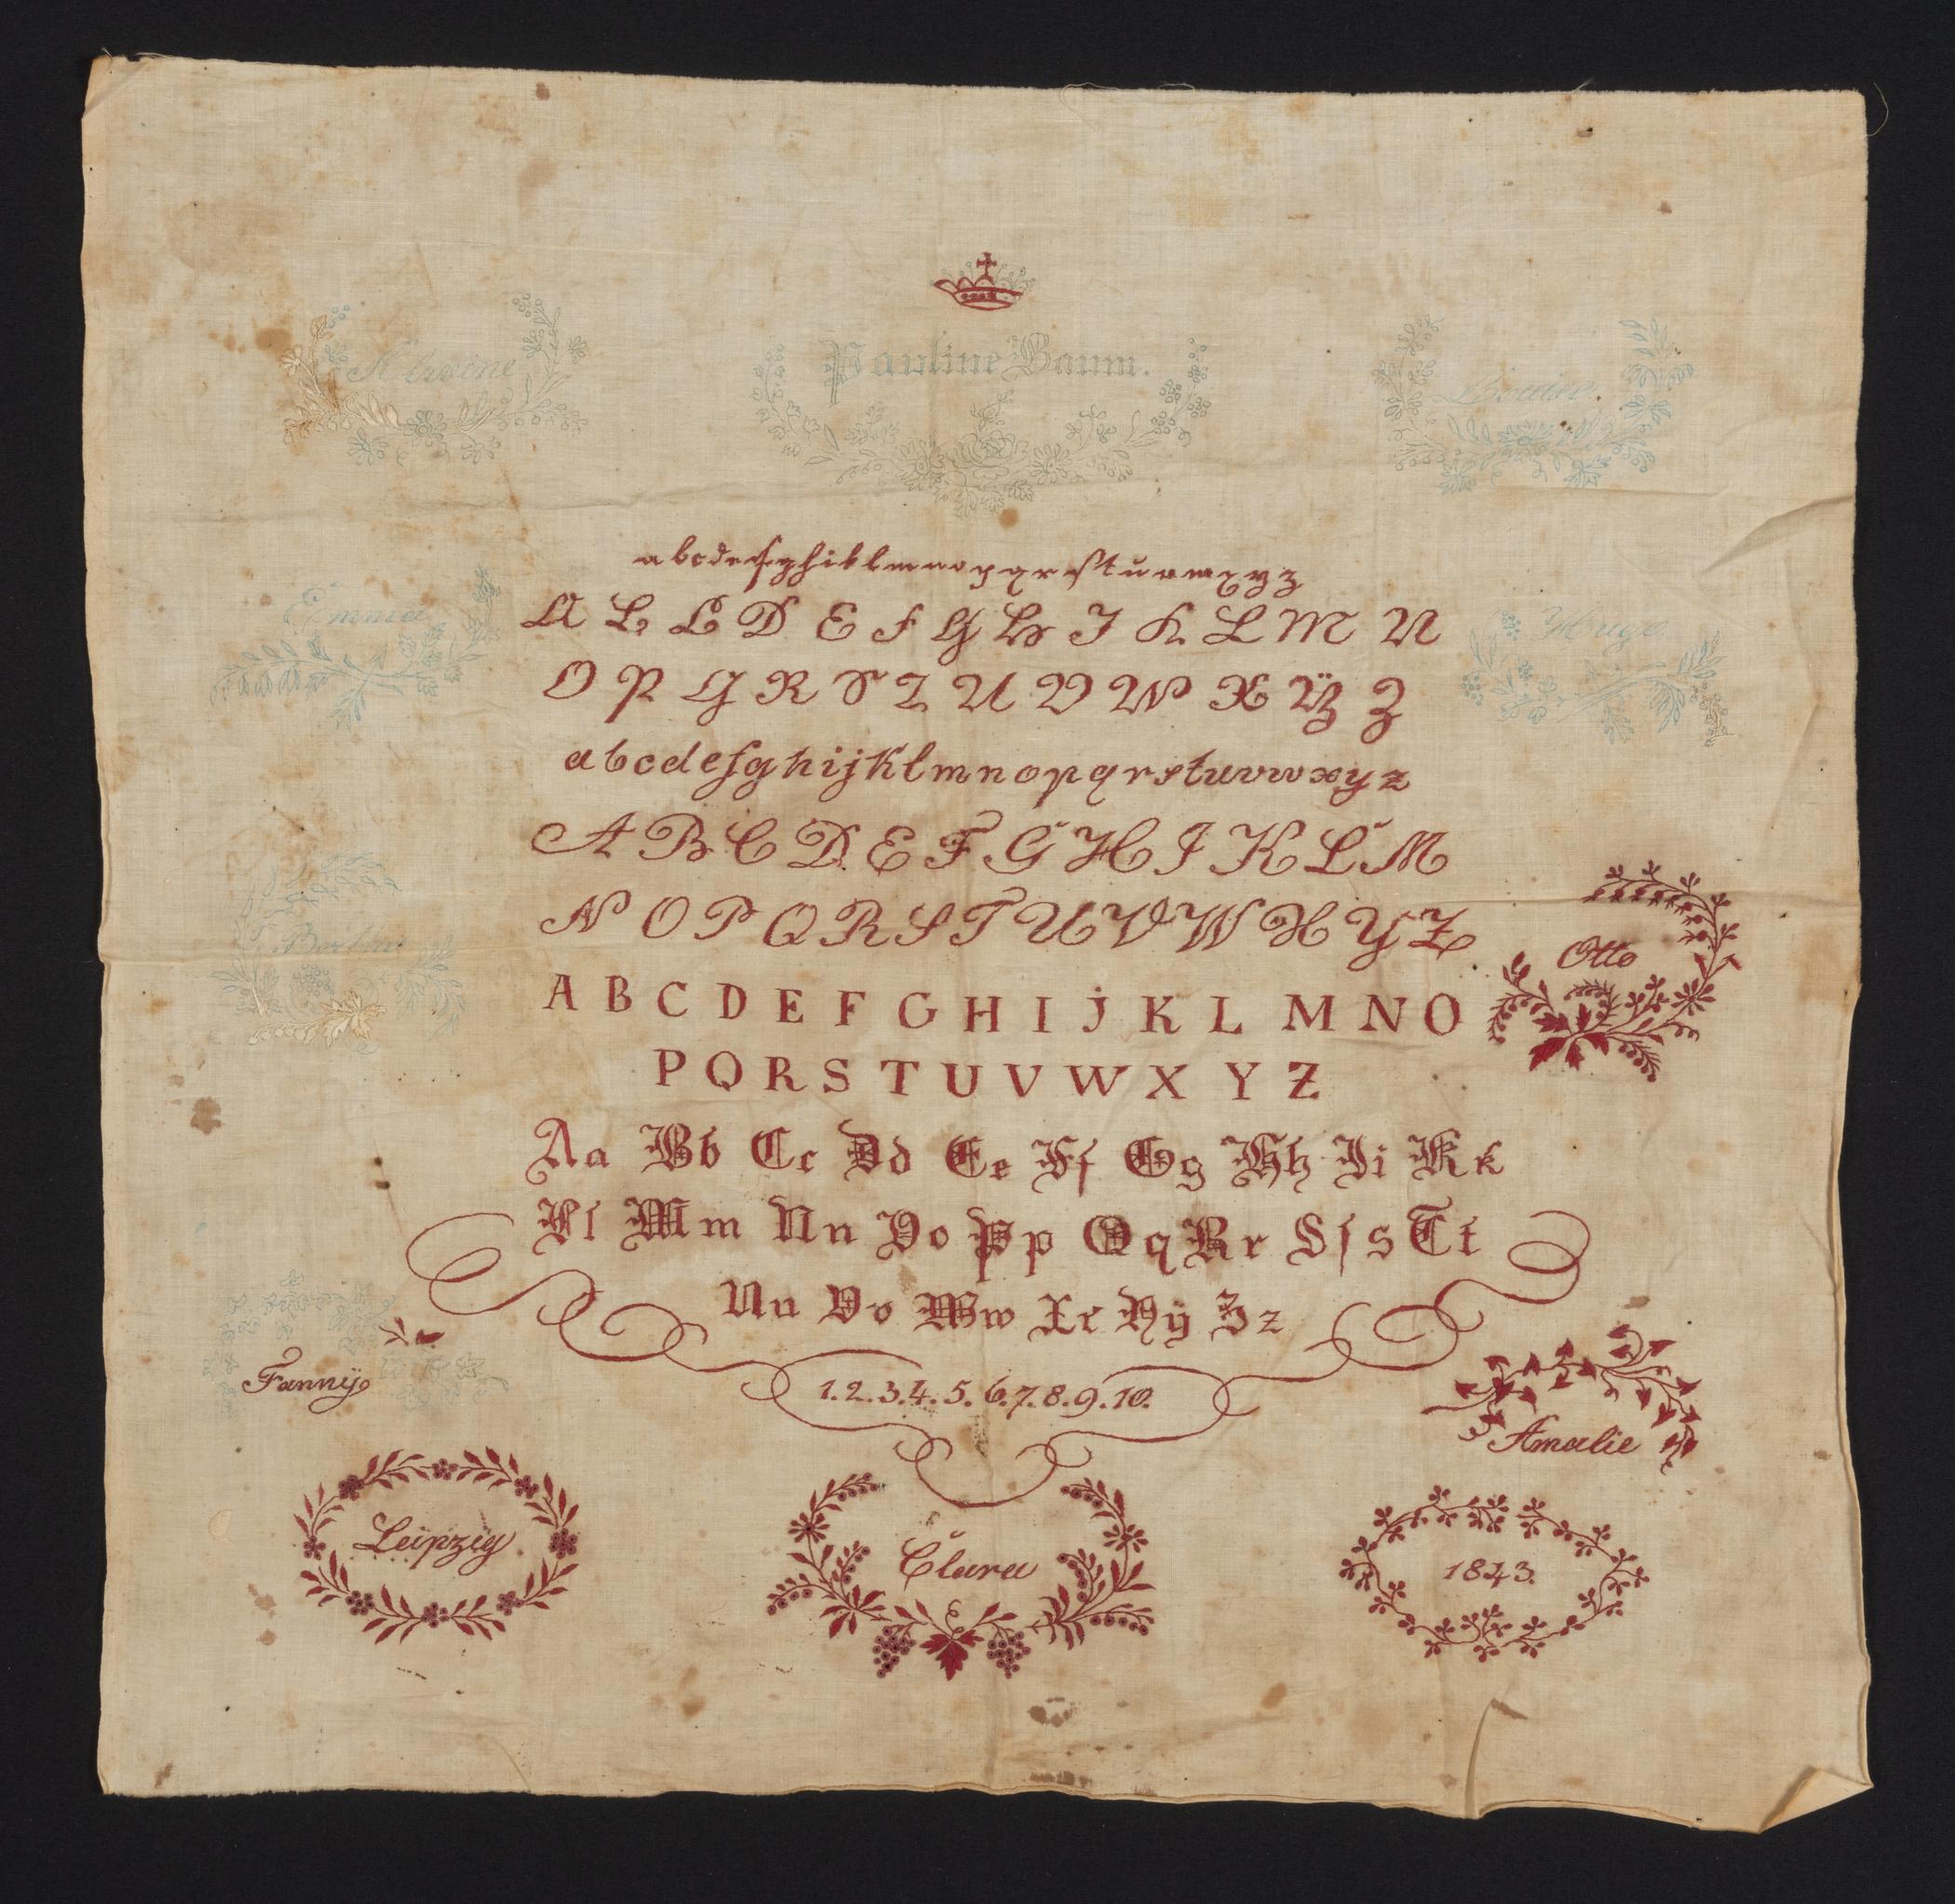 Pauline Baum.
Emma
Hugo
abcdefghiklmnopqrſstuvwxyz
A B C D E F G H I K L M N
O P Q R S T U V W X Ÿ Z
abcdefghijklmnopqrstuvwxyz
A B C D E F G H I K L M
N O P Q R S T U V W X Y Z
Otto
A B C D E F G H I J K L M N O
P Q R S T U V W X Y Z
Bertha
Aa Bb Cc Dd Ee Ff Gg Hh Ii Kk
Ll Mm Nn Oo Pp Qq Rr Sſs Tt
Uu Vv Ww Xx Yÿ Zz
1.2.3.4.5.6.7.8.9.10.
Fannÿ
Amalie
Leipzig.
Clara
1843.